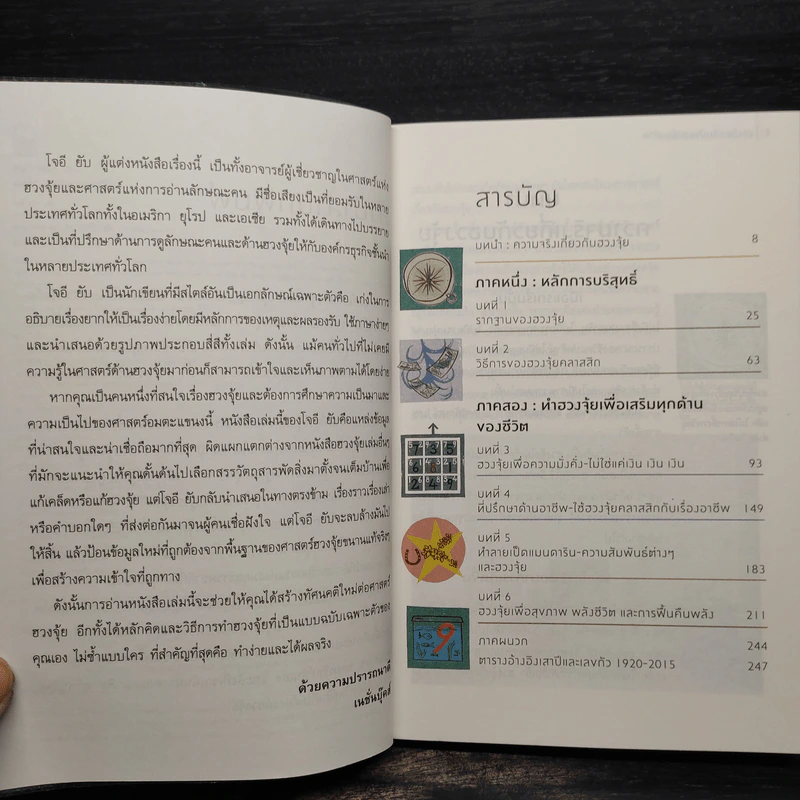 โจอี ยับ ผู้แต่งหนังสือเรื่องนี้ เป็นทั้งอาจารย์ผู้เชี่ยวชาญในศาสตร์แห่ง
ฮวงจุ้ยและศาสตร์แห่งการอ่านลักษณะคน มีชื่อเสียงเป็นที่ยอมรับในหลาย
ประเทศทั่วโลกทั้งในอเมริกา ยุโรป และเอเซีย รวมทั้งได้เดินทางไปบรรยาย
และเป็นที่ปรึกษาด้านการดูลักษณะคนและด้านฮวงจุ้ยให้กับองค์กรธุรกิจชั้นนำ
ในหลายประเทศทั่วโลก
โจอี ยับ เป็นนักเขียนที่มีสไตล์อันเป็นเอกลักษณ์เฉพาะตัวคือ เก่งในการ
อธิบายเรื่องยากให้เป็นเรื่องง่ายโดยมีหลักการของเหตุและผลรองรับ ใช้ภาษาง่ายๆ
และนำเสนอด้วยรูปภาพประกอบสี่สีทั้งเล่ม ดังนั้น แม้คนทั่วไปที่ไม่เคยมี
ความรู้ในศาสตร์ด้านฮวงจุ้ยมาก่อนก็สามารถเข้าใจและเห็นภาพตามได้โดยง่าย
หากคุณเป็นคนหนึ่งที่สนใจเรื่องฮวงจุ้ยและต้องการศึกษาความเป็นมาและ
ความเป็นไปของศาสตร์อมตะแขนงนี้ หนังสือเล่มนี้ของโจอี ยับคือแหล่งข้อมูล
ที่น่าสนใจและน่าเชื่อถือมากที่สุด ผิดแผกแตกต่างจากหนังสือฮวงจุ้ยเล่มอื่นๆ
ที่มักจะแนะนำให้คุณดั้นด้นไปเลือกสรรวัตถุสารพัดสิ่งมาตั้งจนเต็มบ้านเพื่อ
แก้เคล็ดหรือแก้ฮวงจุ้ย แต่โจอี ยับกลับนำเสนอในทางตรงข้าม เรื่องราวเรื่องเล่า
หรือคำบอกใดๆ ที่ส่งต่อกันมาจนผู้คนเชื่อฝังใจ แต่โจอี ยับจะลบล้างมันไป
ให้สิ้น แล้วป้อนข้อมูลใหม่ที่ถูกต้องจากพื้นฐานของศาสตร์ฮวงจุ้ยขนานแท้จริงๆ
เพื่อสร้างความเข้าใจที่ถูกทาง
ดังนั้นการอ่านหนังสือเล่มนี้จะช่วยให้คุณได้สร้างทัศนคติใหม่ต่อศาสตร์
ฮวงจุ้ย อีกทั้งได้หลักคิดและวิธีการทำฮวงจุ้ยที่เป็นแบบฉบับเฉพาะตัวของ
คุณเอง ไม่ซ้ำแบบใคร ที่สำคัญที่สุดคือ ทำง่ายและได้ผลจริง
ด้วยความปรารถนาดี
เนชั่นบุ๊คส์
สารบัญ
บทนำ : ความจริงเกี่ยวกับฮวงจุ้ย 8
ภาคหนึ่ง : หลักการบริสุทธิ์
บทที่ 1
รากฐานของฮวงจุ้ย 25
บทที่ 2
วิธีการของฮวงจุ้ยคลาสสิก 63
ภาคสอง : ทำฮวงจุ้ยเพื่อเสริมทุกด้าน
ของชีวิต
บทที่ 3
ฮวงจุ้ยเพื่อความมั่งคั่ง-ไม่ใช่แค่เงิน เงิน เงิน 93
บทที่ 4
ที่ปรึกษาด้านอาชีพ-ใช้ฮวงจุ้ยคลาสสิกกับเรื่องอาชีพ 149
บทที่ 5
ทำลายเป็ดแมนดาริน-ความสัมพันธ์ต่างๆ
และฮวงจุ้ย 183
บทที่ 6
ฮวงจุ้ยเพื่อสุขภาพ พลังชีวิต และการฟื้นคืนพลัง 211
ภาคผนวก 244
ตารางอ้างอิงเสาปีและเลขกัว 1920-2015 247